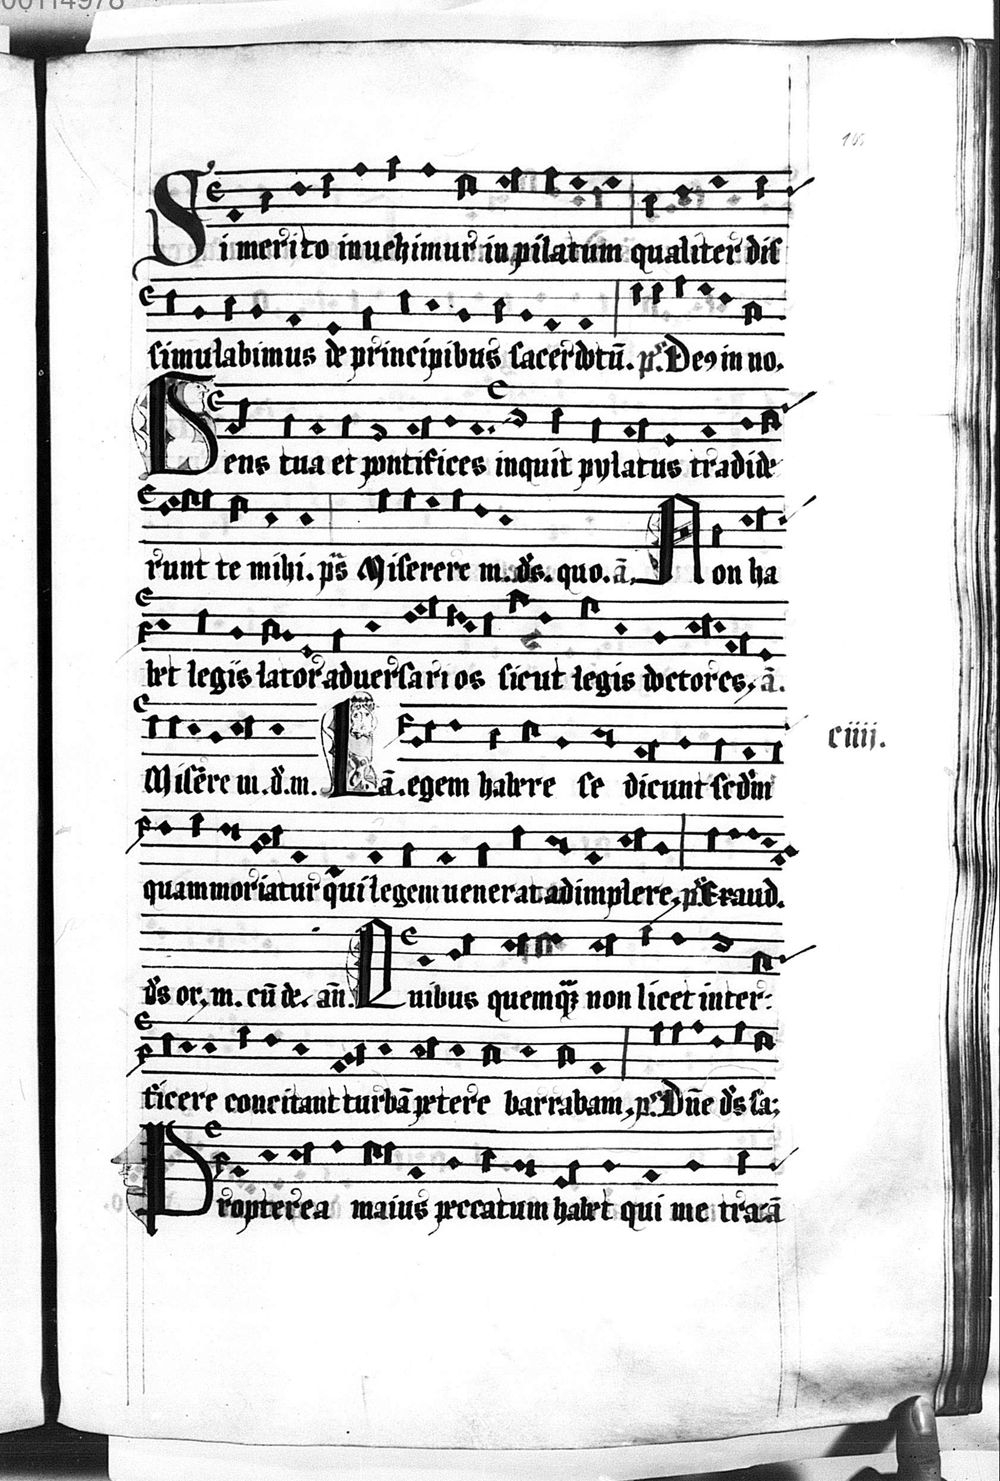 00114978
Si merito inuehimur in pilatum qualiter dis
simulabimus de principibus sacerdotū. ps. Deꝯ in no.
Gens tua et pontifices inquit pylatus tradide
runt te mihi. ps Miserere m. ds. quo. ā.
Non ha
bet legis lator aduersarios sicut legis doctores, ā.
Misere m. d. m. ā. Legem habere se dicunt secdm
ciiij.
quam moriatur qui legem uenerat adimplere, ps Exaud.
ds or. m. cū de. an. Quibus quemqꝫ non licet inter:
ficere concitant turbā petere barrabam, ps. Dn̄e ds sa;
Propterea maius peccatum habet qui me tra